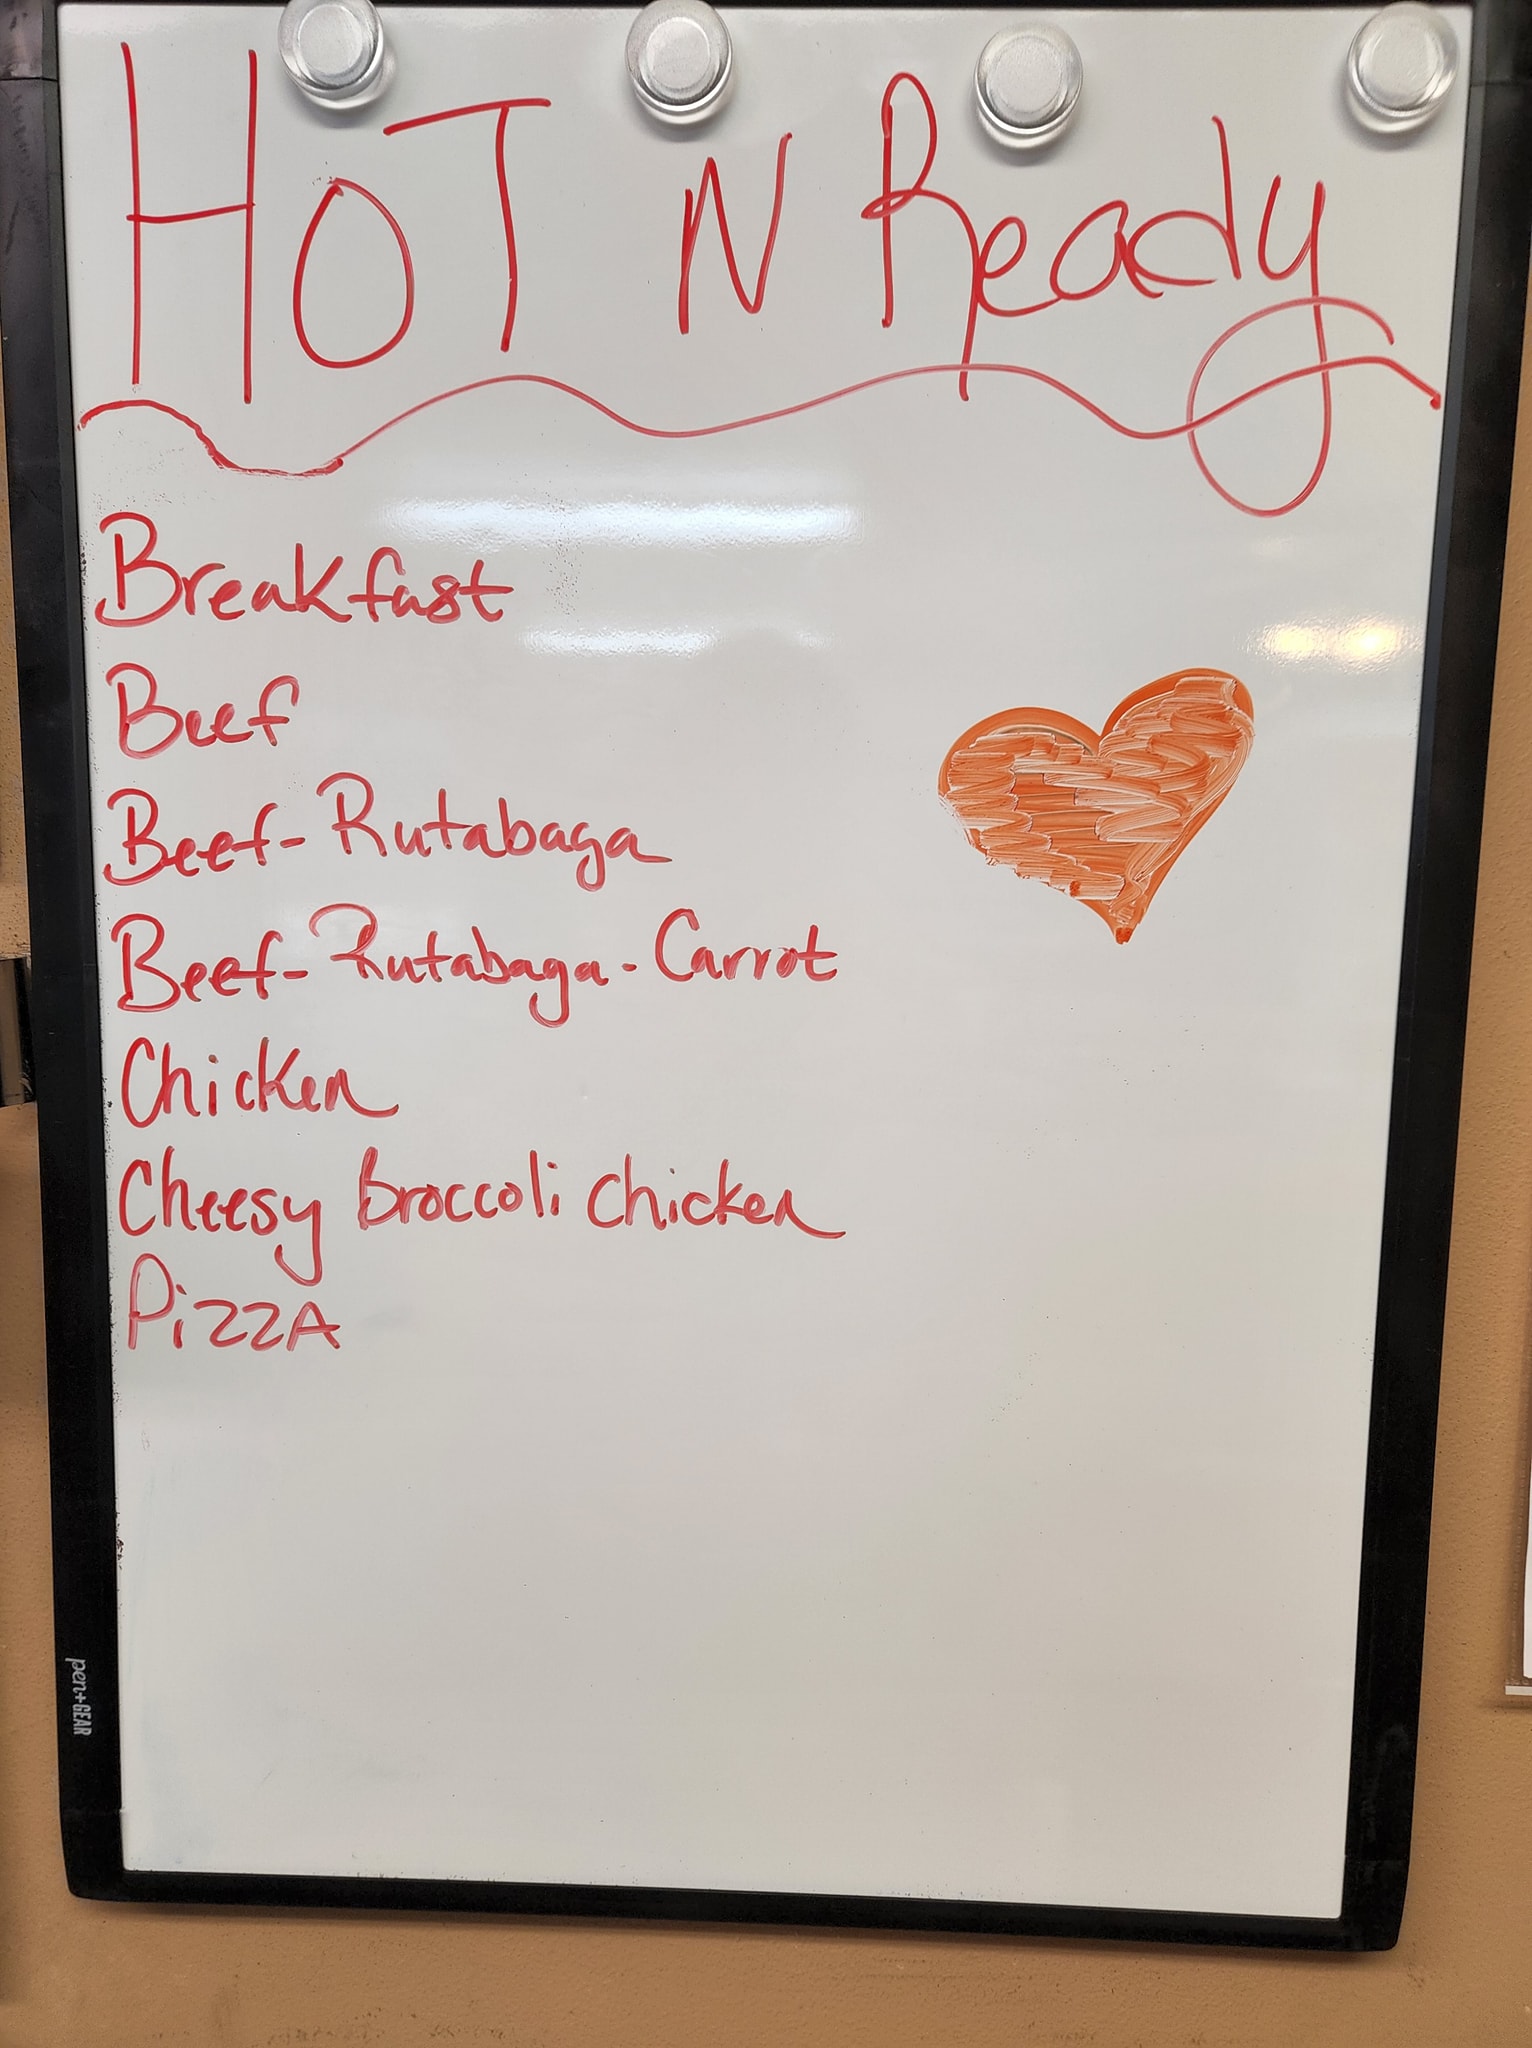 HOT N Ready
Breakfast
Beef
Beef-Rutabaga
Beef-Rutabaga-Carrot
Chicken
Cheesy Broccoli Chicken
PizzA
pen+GEAR